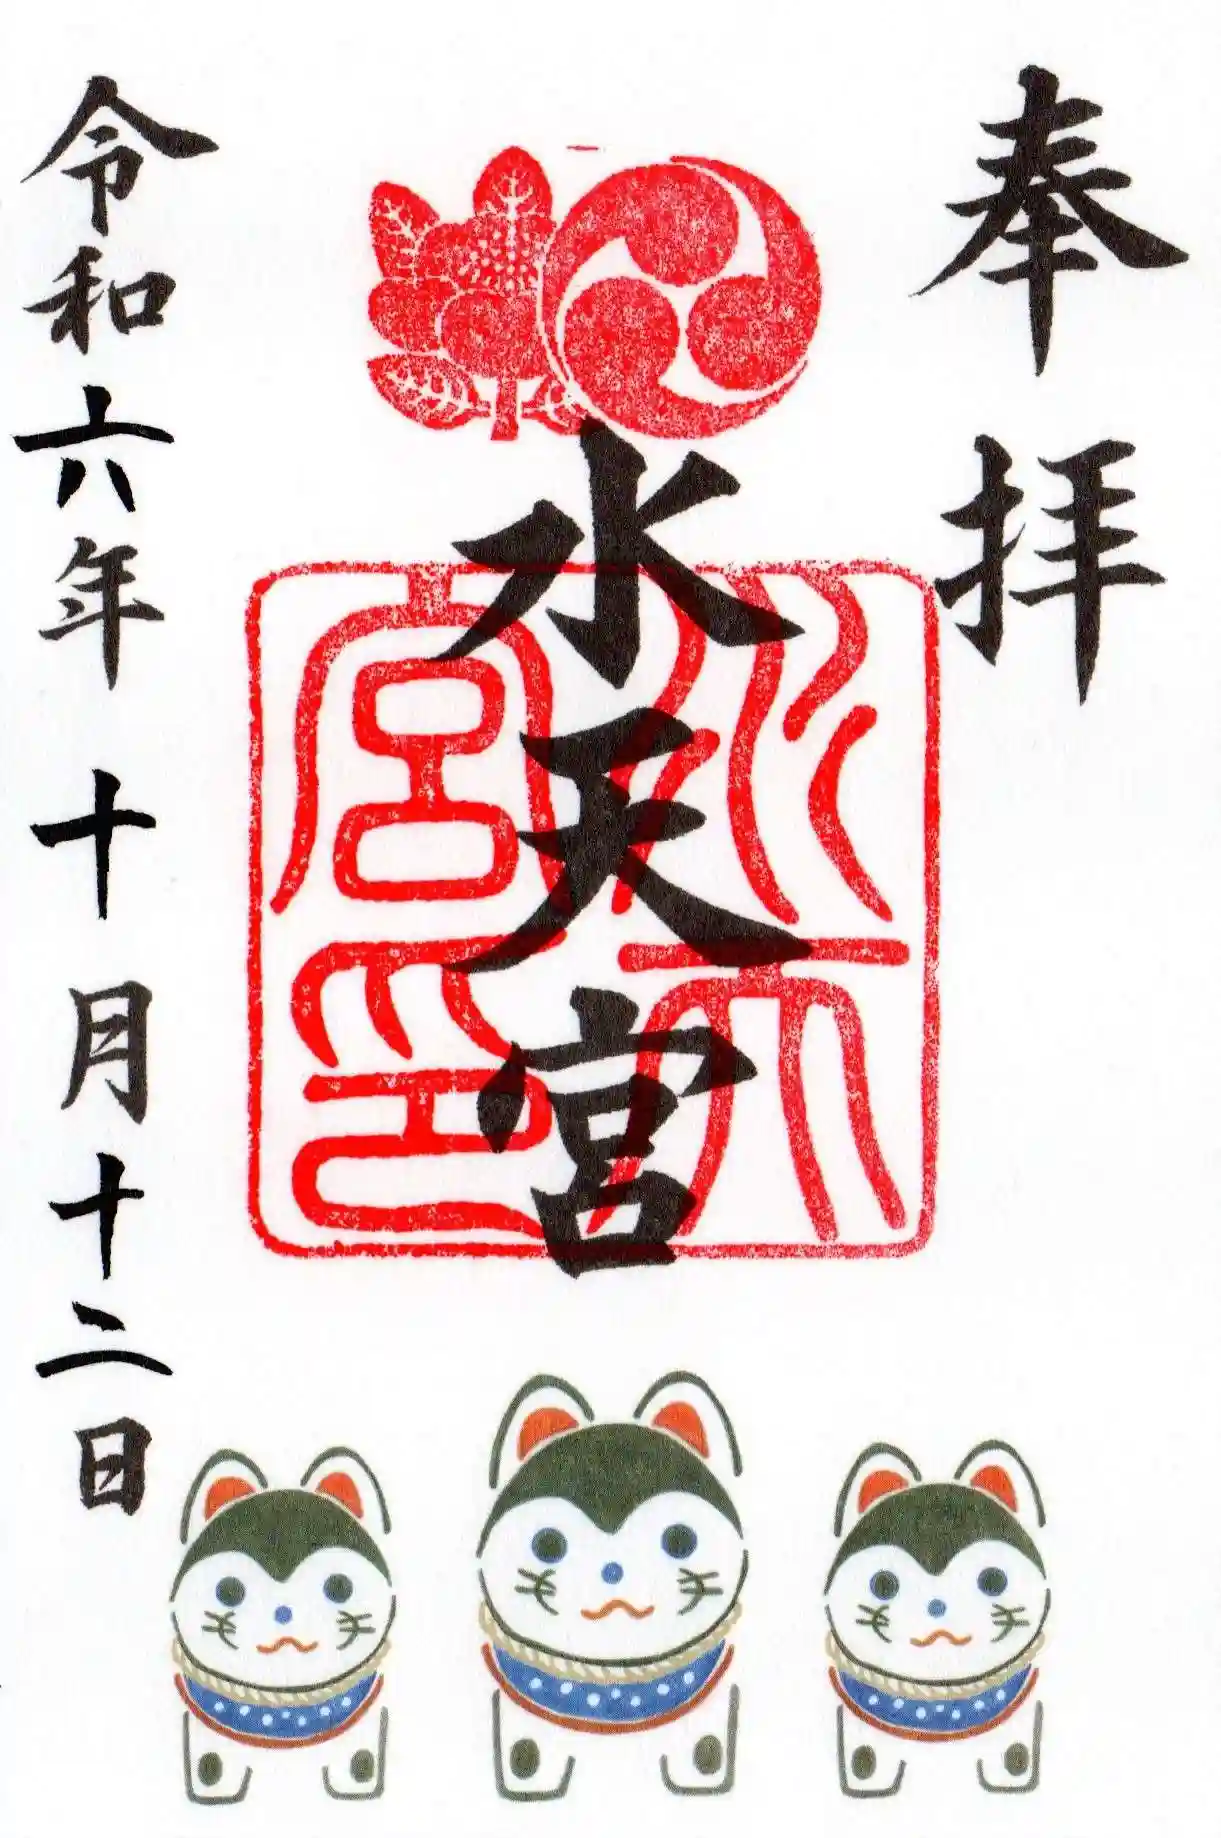 奉拝
水天宮
水天宮印
令和六年 十月十二日